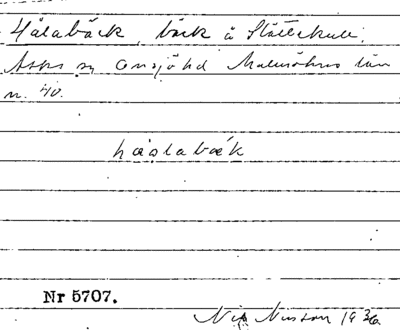 Hålabäck, bäck å Stättekull.
Asks sn Onsjö hd Malmöhus län
n. 40.
håslabæk
Nr 5707.
Nils Nilsson 1936